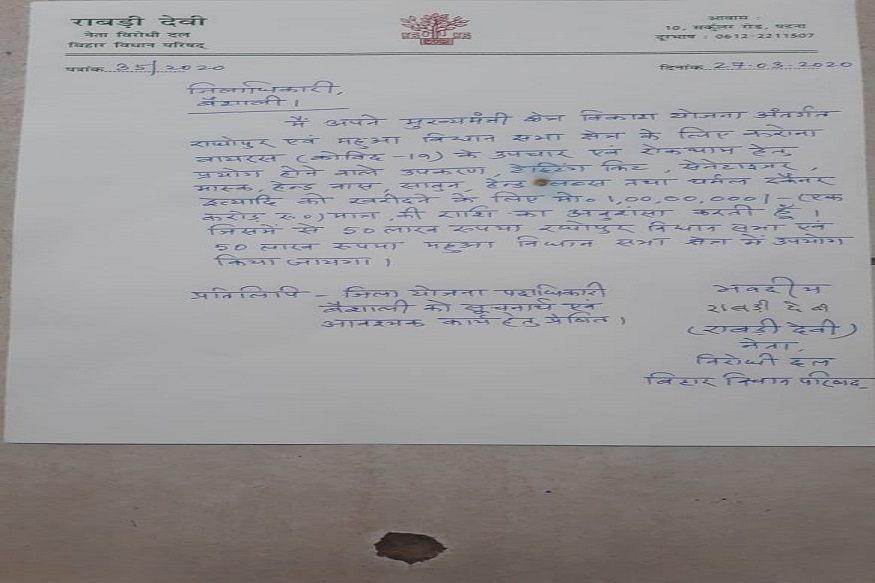 राबड़ी देवी
नेता विरोधी दल
बिहार विधान परिषद्
आवास :
10, सर्कुलर रोड, पटना
दूरभाष : 0612-2211507
पत्रांक 35/2020
दिनांक 27-03-2020
जिलाधिकारी,
वैशाली।
मैं अपने मुख्यमंत्री क्षेत्र विकास योजना अंतर्गत
राघोपुर एवं महुआ विधान सभा क्षेत्र के लिए करोना
वायरस (कोविद -19) के उपचार एवं रोकथाम हेतु
प्रयोग होने वाले उपकरण, टेस्टिंग किट, सेनेटाइजर,
मास्क, हेन्ड वास, साबुन, हेन्ड ग्लब्स तथा थर्मल स्कैनर
इत्यादि को खरीदने के लिए मो० 1,00,00,000/- (एक
करोड़ रु०) मात्र, की राशि का अनुशंसा करती हूँ।
जिसमें से 50 लाख रूपया राघोपुर विधान सभा एवं
50 लाख रूपया महुआ विधान सभा क्षेत्र में उपयोग
किया जायगा।
प्रतिलिपि - जिला योजना पदाधिकारी
वैशाली को सूचनार्थ एवं
आवश्यक कार्य हेतु प्रेषित।
भवदीय
राबड़ी देवी
(राबड़ी देवी)
नेता,
विरोधी दल
बिहार विधान परिषद